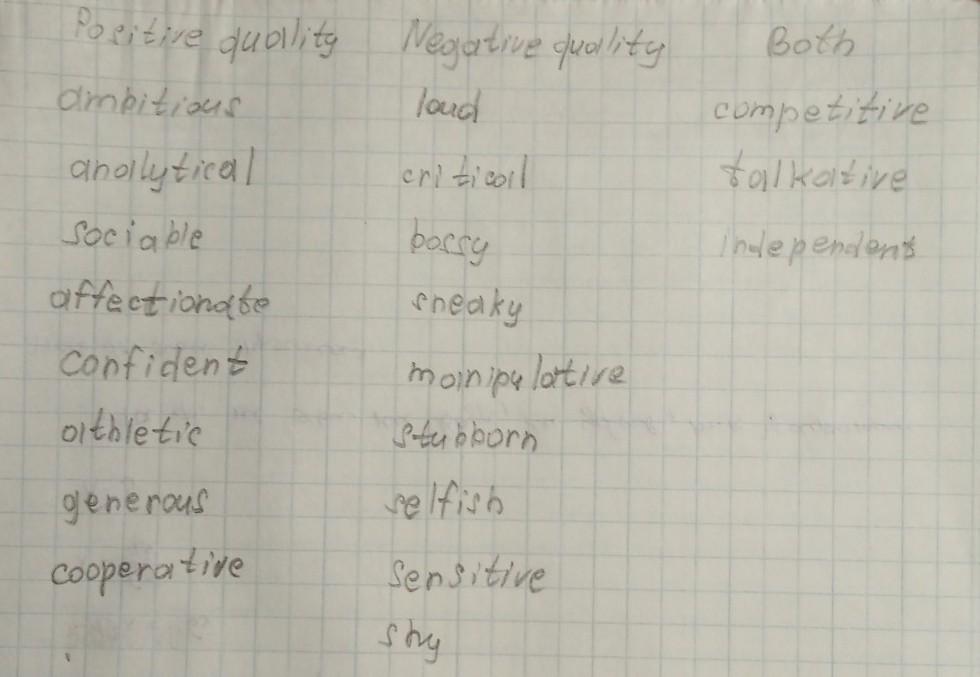 Positive quality Negative quality Both
ambitious loud competitive
analytical critical talkative
sociable bossy independent
affectionate sneaky
confident manipulative
athletic stubborn
generous selfish
cooperative sensitive
shy